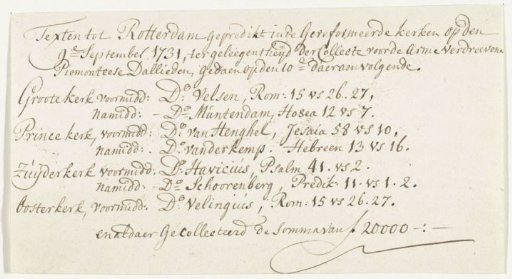 Texten tot Rotterdam gepredikt in de Gereformeerde kerken op den
9en September 1731, ter gelegentheyd der Collecte voor de Arme Verdreevene
Piemonteese Dallieden, gedaen op den 10en daer aen volgende.
Groote kerk voormidd: Do. Velsen, Rom: 15 vs 26. 27,
namidd: Do. Mantendam, Hosea 12 vs 7.
Prince kerk, voormidd: Do. van Henghel, Jesaia 58 vs 10,
namidd: Do. vander Kemp. Hebreen 13 vs 16.
Zuyderkerk voormidd: Do. Havicius, Psalm 41. vs 2.
namidd: Do. Schoorenberg, Predik: 11 vs 1. 2.
Oosterkerk, voormidd: Do. Velingius, Rom: 15 vs 26. 27.
en at daer Gecollecteerd de Somma van f 20000 -:-